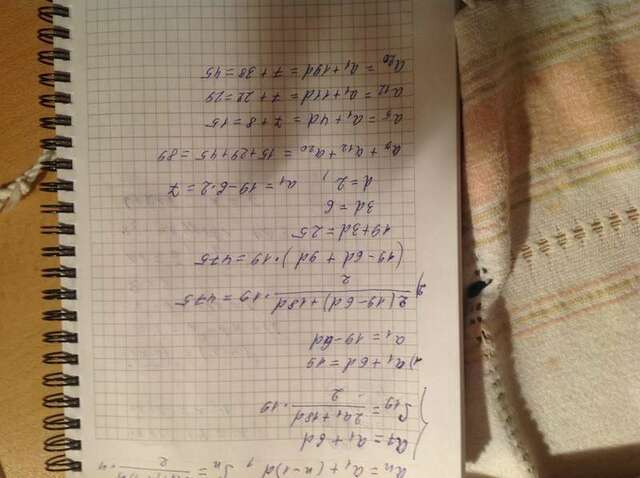 aₙ = a₁ + (n-1)d, Sₙ = 2 · n
a₇ = a₁ + 6d
S₁₉ = (2a₁ + 18d)/2 · 19
1) a₁ + 6d = 19
a₁ = 19 - 6d
2) (2(19 - 6d) + 18d)/2 · 19 = 475
(19 - 6d + 9d) · 19 = 475
19 + 3d = 25
3d = 6
d = 2, a₁ = 19 - 6·2 = 7
a₅ + a₁₂ + a₂₀ = 15 + 29 + 45 = 89
a₅ = a₁ + 4d = 7 + 8 = 15
a₁₂ = a₁ + 11d = 7 + 22 = 29
a₂₀ = a₁ + 19d = 7 + 38 = 45